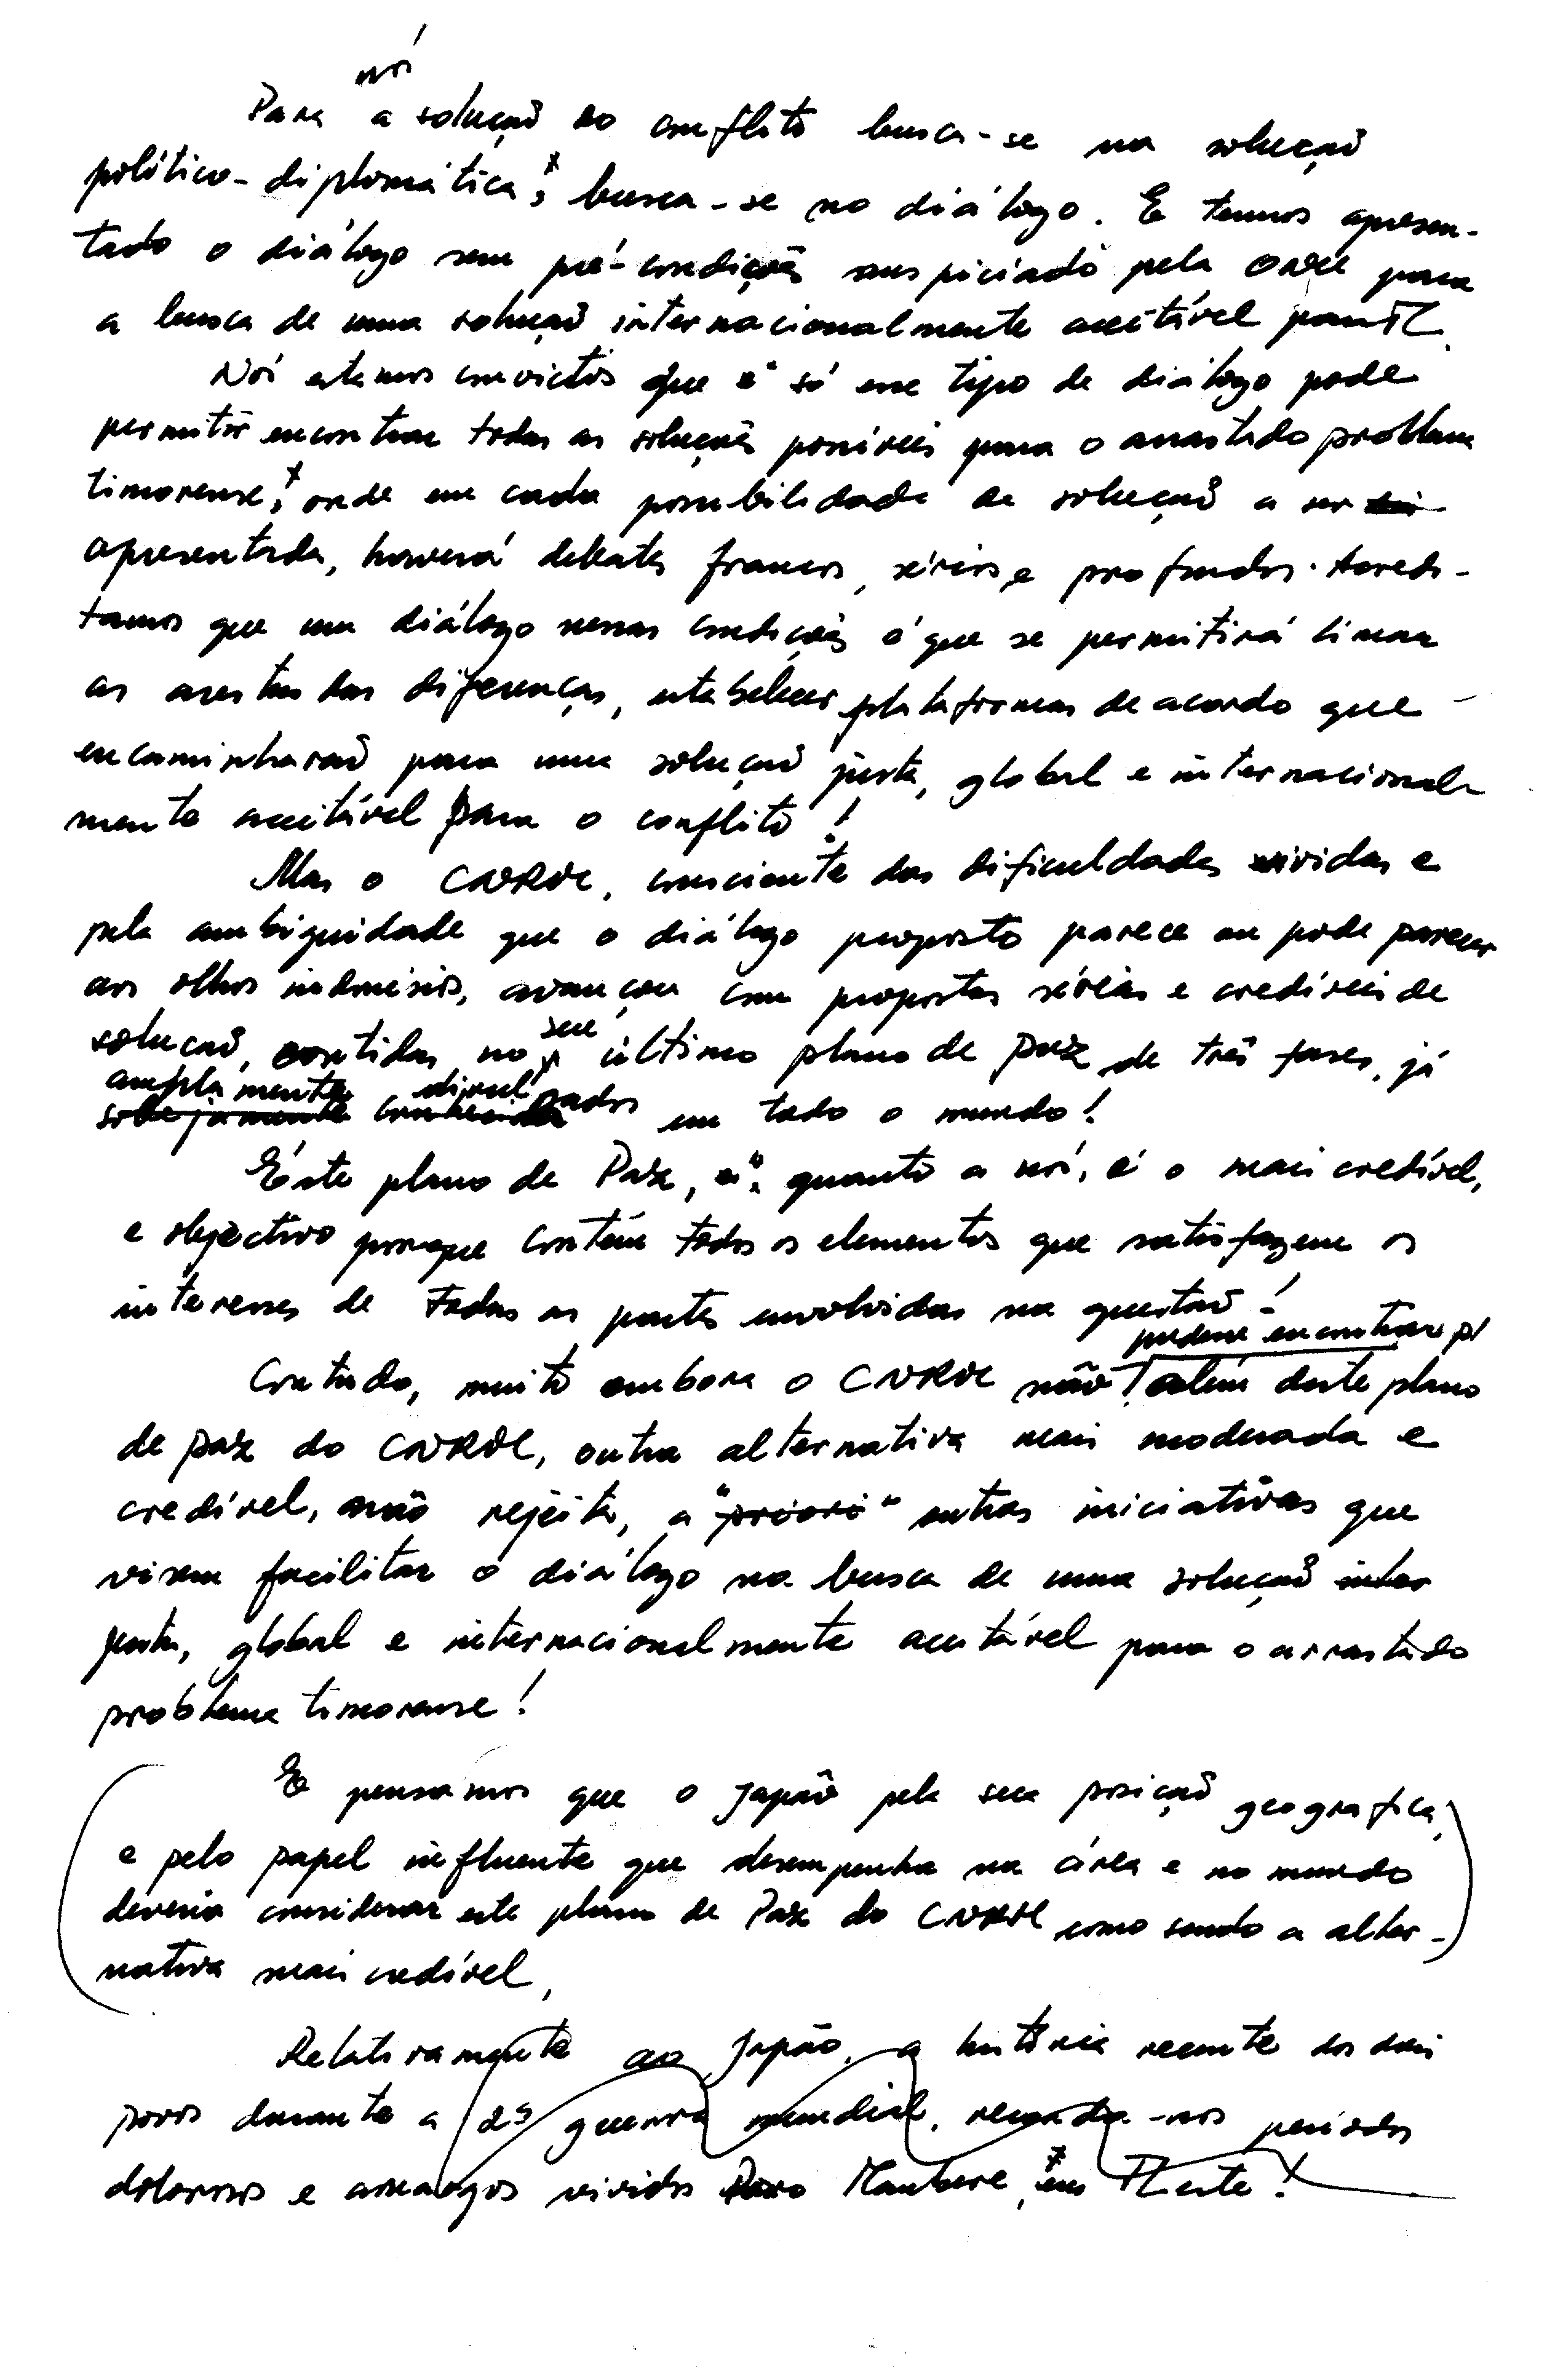 nós
Para a solução do conflito busca-se na solução
político-diplomática, busca-se no diálogo. E temos apresen-
tado o diálogo sem pré-condições auspiciado pela ONU para
a busca de uma solução internacionalmente aceitável para TL.
Nós estamos convictos que só esse tipo de diálogo pode
permitir encontrar todas as soluções possíveis para o arrastado problema
timorense, onde em cada possibilidade de solução a ser
apresentada, haverá debates francos, sérios e profundos. Acredi-
tamos que um diálogo nessas condições é que se permitirá limar
as arestas das diferenças, estabelecer plataformas de acordo que
encaminharão para uma solução justa, global e internacional-
mente aceitável para o conflito!
Mas o CNRM, consciente das dificuldades vividas e
pela ambiguidade que o diálogo proposto parece ou pode parecer
aos olhos indonésios, avançou com propostas sérias e credíveis de
seu
solução, contidas no último plano de paz de três fases, já
amplamente divul
sobejamente conhecida gados em todo o mundo!
Este plano de Paz, quanto a nós, é o mais credível,
e objectivo porque contém todos os elementos que satisfazem os
interesses de todas as partes envolvidas na questão!
pudesse encontrar p/
Contudo, muito embora o CNRM não além deste plano
de paz do CNRM, outra alternativa mais moderada e
credível, não rejeita, a "priori" outras iniciativas que
visem facilitar o diálogo na busca de uma solução inter
justa, global e internacionalmente aceitável para o arrastado
problema timorense!
E pensamos que o Japão pela sua posição geografica,
e pelo papel influente que desempenha na área e no mundo
deveria considerar este plano de Paz do CNRM como sendo a alter-
nativa mais credível,
Relativamente ao Japão, a história recente dos dois
povos durante a 2ª guerra mundial, recorda-nos períodos
dolorosos e amargos vividos Povo Maubere, em TLeste!